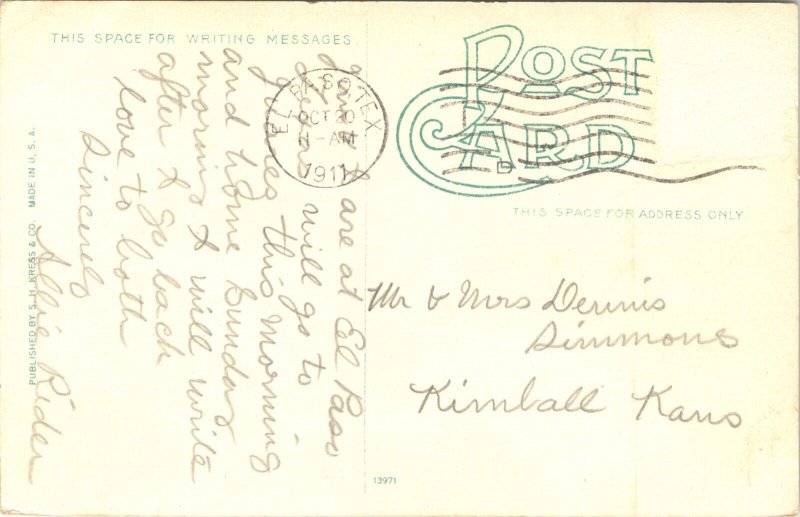 THIS SPACE FOR WRITING MESSAGES
POST
CARD
THIS SPACE FOR ADDRESS ONLY
EL PASO, TEX
OCT 20
-AM
1911
are at Eel Paso
will go to
this morning
and home Sunday
morning I will write
after I go back
love to both
Sincerely
Allie Rider
Mr & Mrs Dennis
Simmons
Kimball Kans
PUBLISHED BY S. H. KRESS & CO. MADE IN U. S. A.
13971